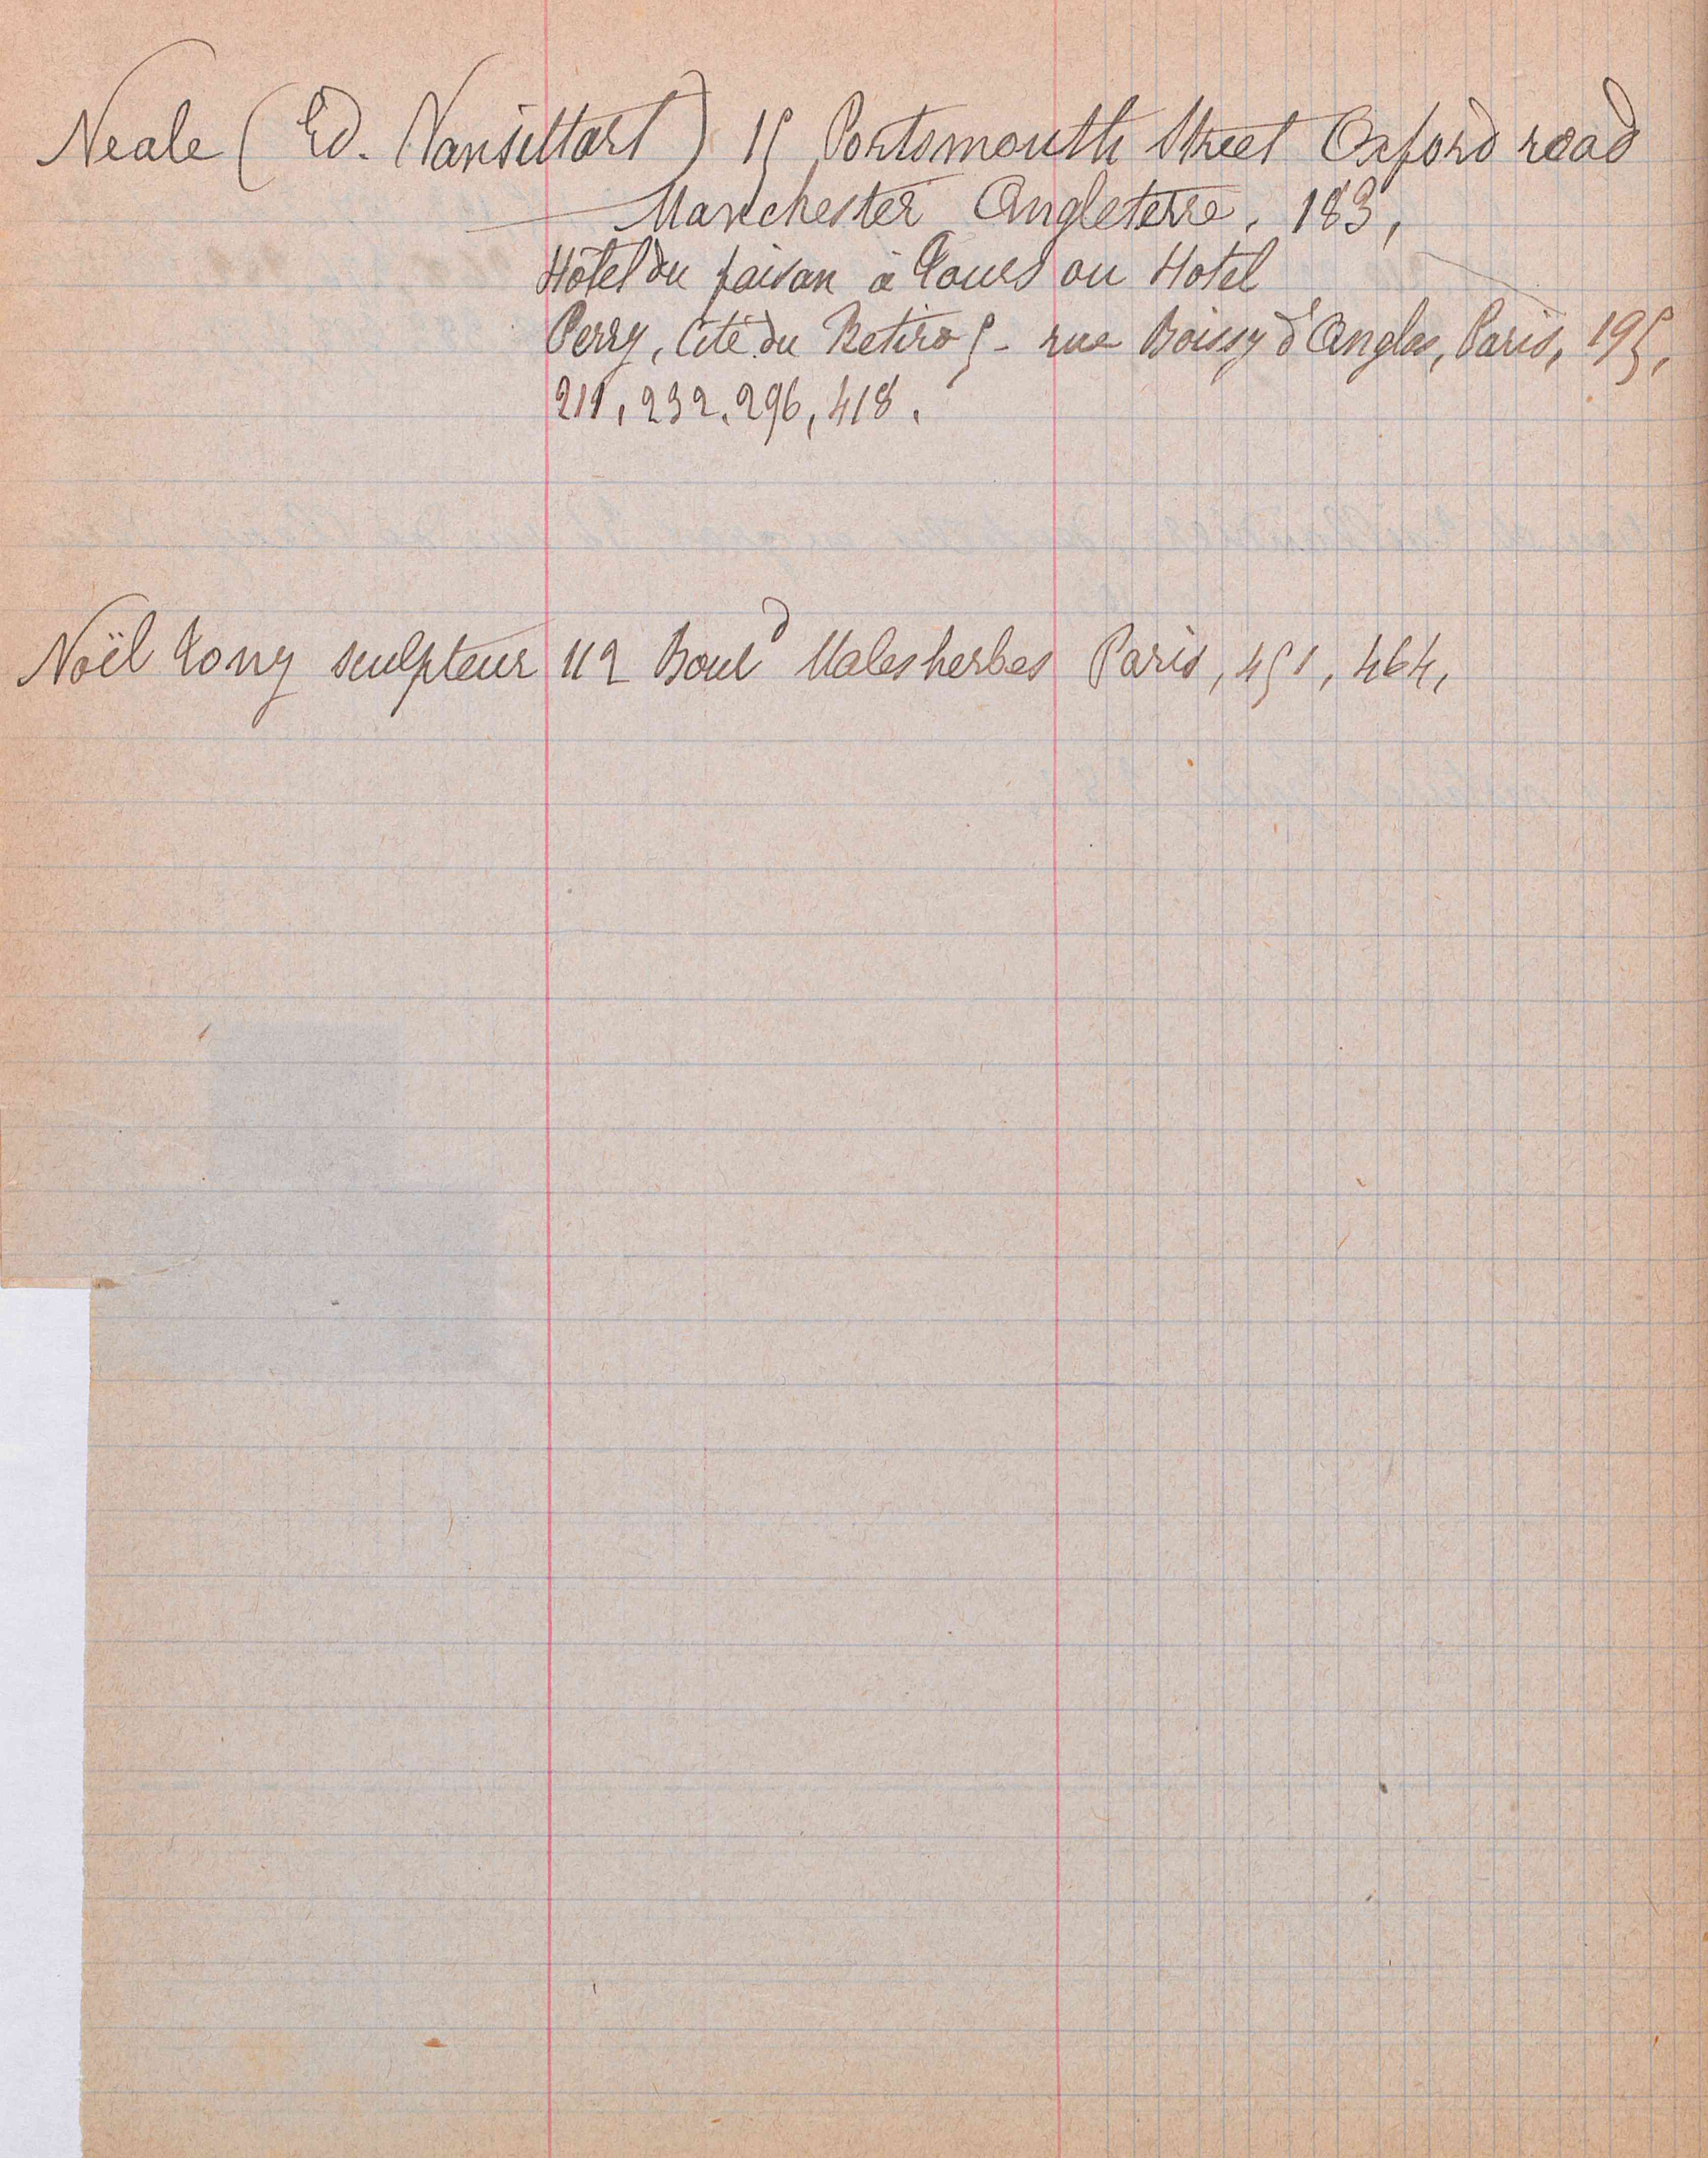 Neale (Ed. Vansittart) 15 Portsmouth Street Oxford road
Manchester Angleterre, 183,
Hôtel du faisan à Tours ou Hotel
Perey, Cité du Retiro 5 - rue Boissy d'Anglas, Paris, 195,
211, 232, 296, 418.
Noël Tony sculpteur 112 Boul^d Malesherbes Paris, 451, 464,